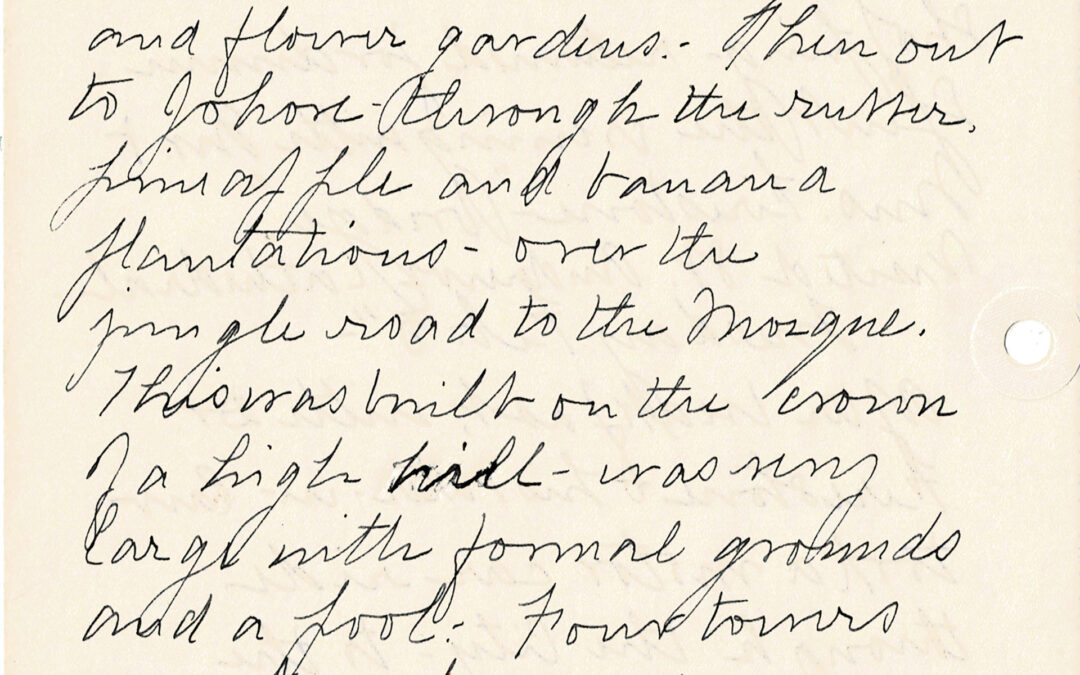 and flower gardens. - Then out
to Johore - through the rubber,
pineapple and banana
plantations - over the
jungle road to the Mosque.
This was built on the crown
of a high hill - was very
large with formal grounds
and a pool. - Four towers